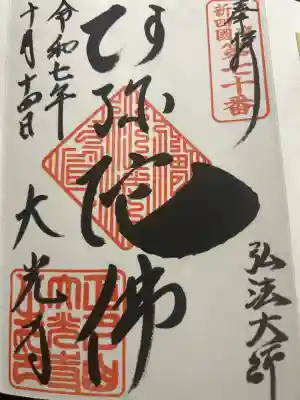 奉拝
新四國第二十番
弘法大師
阿弥陀佛
大光寺
令和七年
十月十四日